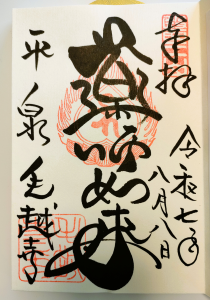 奉拝
令和七年
八月八日
薬師如来
平泉毛越寺